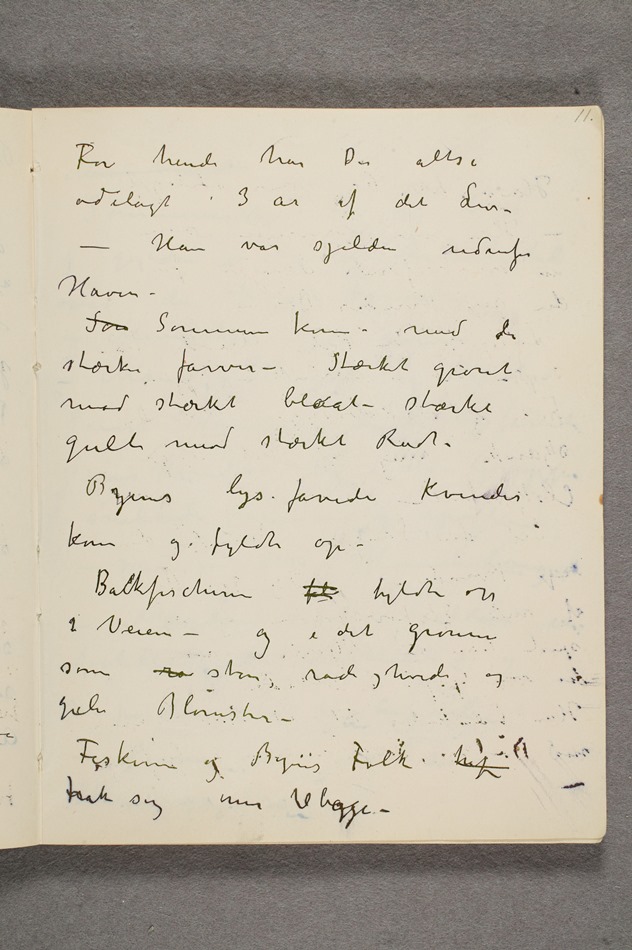 11.
For hende har De altså
ødelagt 3 år af det Liv –
— Han var sjelden udenfor
Haven –
Sommeren kom – med de
stærke farver – Stærkt grønt
mod stærkt blåat – stærkt
gult mod stærkt Rødt –
Byens lys farvede Kvinder
kom og fyldte op –
Backfischerne fyldte op
i Veien – og i det grønne
som store, røde, hvide og
gule Blomster –
Fiskerne og Byens Folk
trak sig mer tilbage –